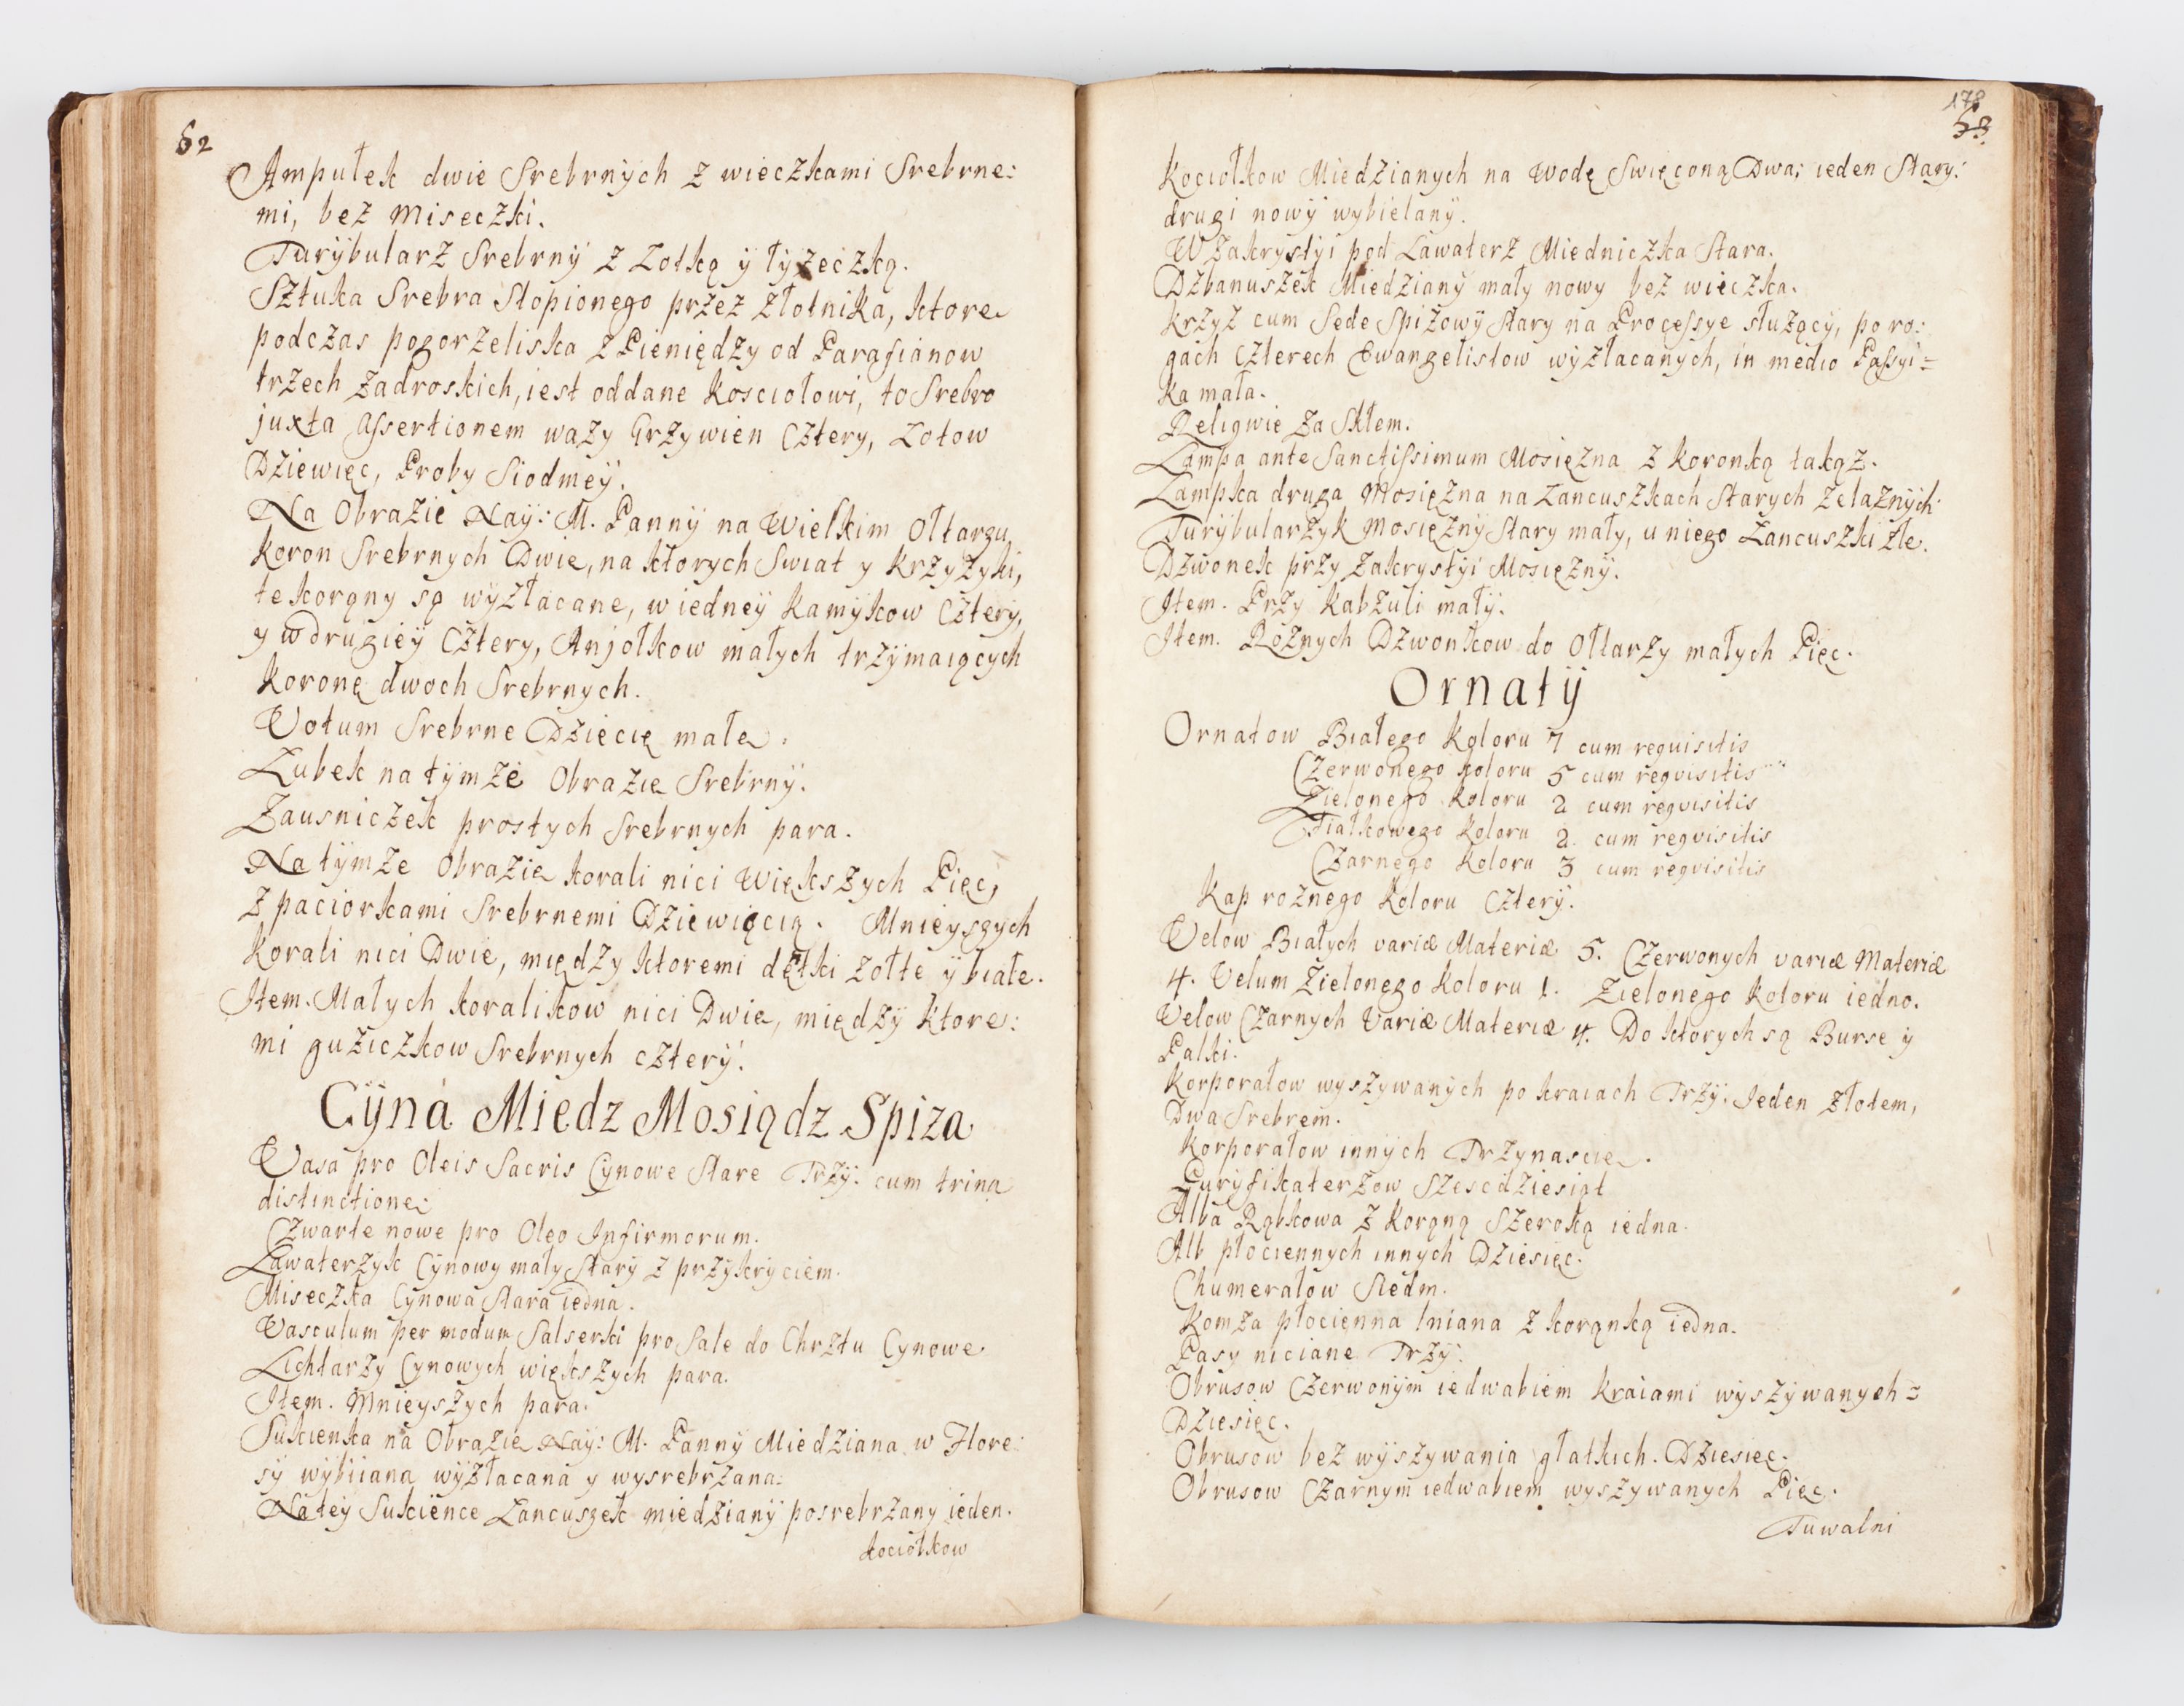 52
Ampułek dwie Srebrnÿch z wieczkami Srebrne:
mi, bez Miseczki.
Turÿbularz Srebrnÿ z Łotką ÿ łyzeczką.
Sztuka Srebra Stopionego przez złotnika, ktore
podczas pogorzeliska z Pieniędzy od Parafianow
trzech Zadroskich, iest oddane kosciołowi, to Srebro
juxta assertionem wazy Grzywien Cztery, Łotow
Dziewięc, Proby Siodmeÿ.
Na Obrazie Naÿ: M. Pannÿ na Wielkim Ołtarzu
koron Srebrnych Dwie, na ktorych Swiat y krzyzyki,
te korąny są wÿzłacane, w iedneÿ kamÿkow Czterÿ,
y w drugieÿ Cztery, Anjołkow małych trzÿmaiącÿch
koronę dwoch Srebrnych.
Votum Srebrne Dziecię małe.
Łubek na tÿmze Obrazie Srebrnÿ.
Zausniczek prostych Srebrnych para.
Na tÿmze Obrazie korali nici Większych Pięc,
z paciorkami Srebrnemi Dziewięcią. Mnieyszych
korali nici Dwie, między ktoremi dętki zołte ÿ białe.
Item. Małych koralikow nici Dwie, międzÿ ktore:
mi guziczkow Srebrnych czterÿ.
Cÿna Miedz Mosiądz Spiza
Vasa pro Oleis Sacris Cynowe Stare Trzÿ: cum trina
distinctione
Czwarte nowe pro Oleo Infirmorum.
Lawaterzyk Cÿnowy mały Starÿ z przÿkrÿciem.
Miseczka Cynowa Stara iedna.
Vasculum per modum Salserki pro Sale do Chrztu Cynowe
Lichtarzy Cynowych większych para.
Item. Mnieyszych para.
Sukienka na Obrazie Naÿ: M. Pannÿ Miedziana w Flore:
sÿ wÿbiiana wÿzłacana y wysrebrzana.
Na teÿ Sukience Łancuszek miedzianÿ posrebrzany ieden.
kociołkow
178
53.
Kociołkow Miedzianych na Wodę Swięconą Dwa; ieden Starÿ:
drugi nowÿ wybielanÿ.
W Zakrystÿi pod Lawaterz Miedniczka Stara.
Dzbanuszek Miedzianÿ mały nowy bez wieczka.
Krzyz cum Sede Spizowÿ Stary na Processye słuzącÿ, po ro:
gach Czterech Ewangelistow wÿzłacanych, in medio Passyi=
ka mała.
Religwie za Skłem.
Lampa ante Sanctissimum Mosięzna z koronką takąz.
Lampka druga Mosięzna na Łancuszkach Starych zelaznÿch
Turÿbularzyk Mosięznÿ Stary mały, u niego Łancuszki złe.
Dzwonek przy Zakrystÿi Mosięznÿ.
Item. Przy kabzuli małÿ.
Item. Roznych Dzwonkow do Ołtarzy małych Pięc.
Ornatÿ
Ornatow Białego koloru 7 cum reguisitis
Czerwonego koloru 5 cum regvisitis
Zielonego koloru 2 cum regvisitis
Fiałkowego koloru 2 cum regvisitis
Czarnego koloru 3 cum regvisitis
Kap roznego koloru Czterÿ.
Velow Białych variæ Materiæ 5. Czerwonych variæ Materiæ
4. Velum Zielonego koloru 1. Zielonego koloru iedno.
Velow Czarnych Variæ Materiæ 4. Do ktorych są Burse ÿ
Palki.
Korporałow wyszywanÿch po kraiach Trzÿ: Ieden złotem,
Dwa Srebrem.
Korporałow innÿch Trzynascie.
Purÿfikaterzow Szescdziesiąt
Alba Rąbkowa z korąną Szeroką iedna.
Alb płociennych innych Dziesięc.
Chumerałow Siedm.
Komza płocienna lniana z korąnką iedna.
Pasy niciane Trzÿ.
Obrusow Czerwonÿm iedwabiem kraiami wyszÿwanych =
Dziesięc.
Obrusow bez wÿszywania głatkich. Dziesięc.
Obrusow Czarnÿm iedwabiem wyszywanych Pięc.
Tuwalni